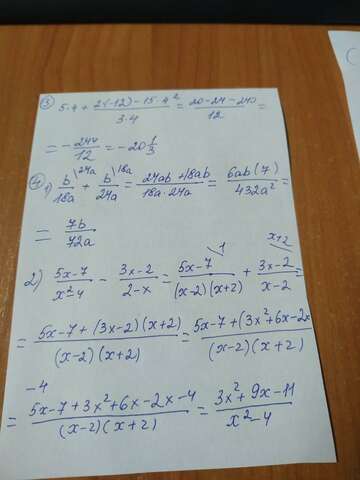 ③ 5·4+2(-12)-15·4² / 3·4 = 20-24-240 / 12 =
= -244/12 = -20 1/3
④ 1) b/18a \24a + b/24a \18a = 24ab+18ab / 18a·24a = 6ab(7) / 432a² =
= 7b/72a
2) 5x-7 / x²-4 - 3x-2 / 2-x = 5x-7 \1 / (x-2)(x+2) + 3x-2 \x+2 / x-2 =
= 5x-7+(3x-2)(x+2) / (x-2)(x+2) = 5x-7+(3x²+6x-2x / (x-2)(x+2)
-4
= 5x-7+3x²+6x-2x-4 / (x-2)(x+2) = 3x²+9x-11 / x²-4